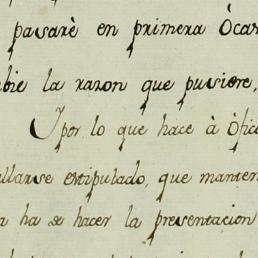 pasarè en primera Òca
bie la razon que pusiere,
Ypor lo que hace à òfic
allarse estipulado, que manten
ha de hacer la presentacion